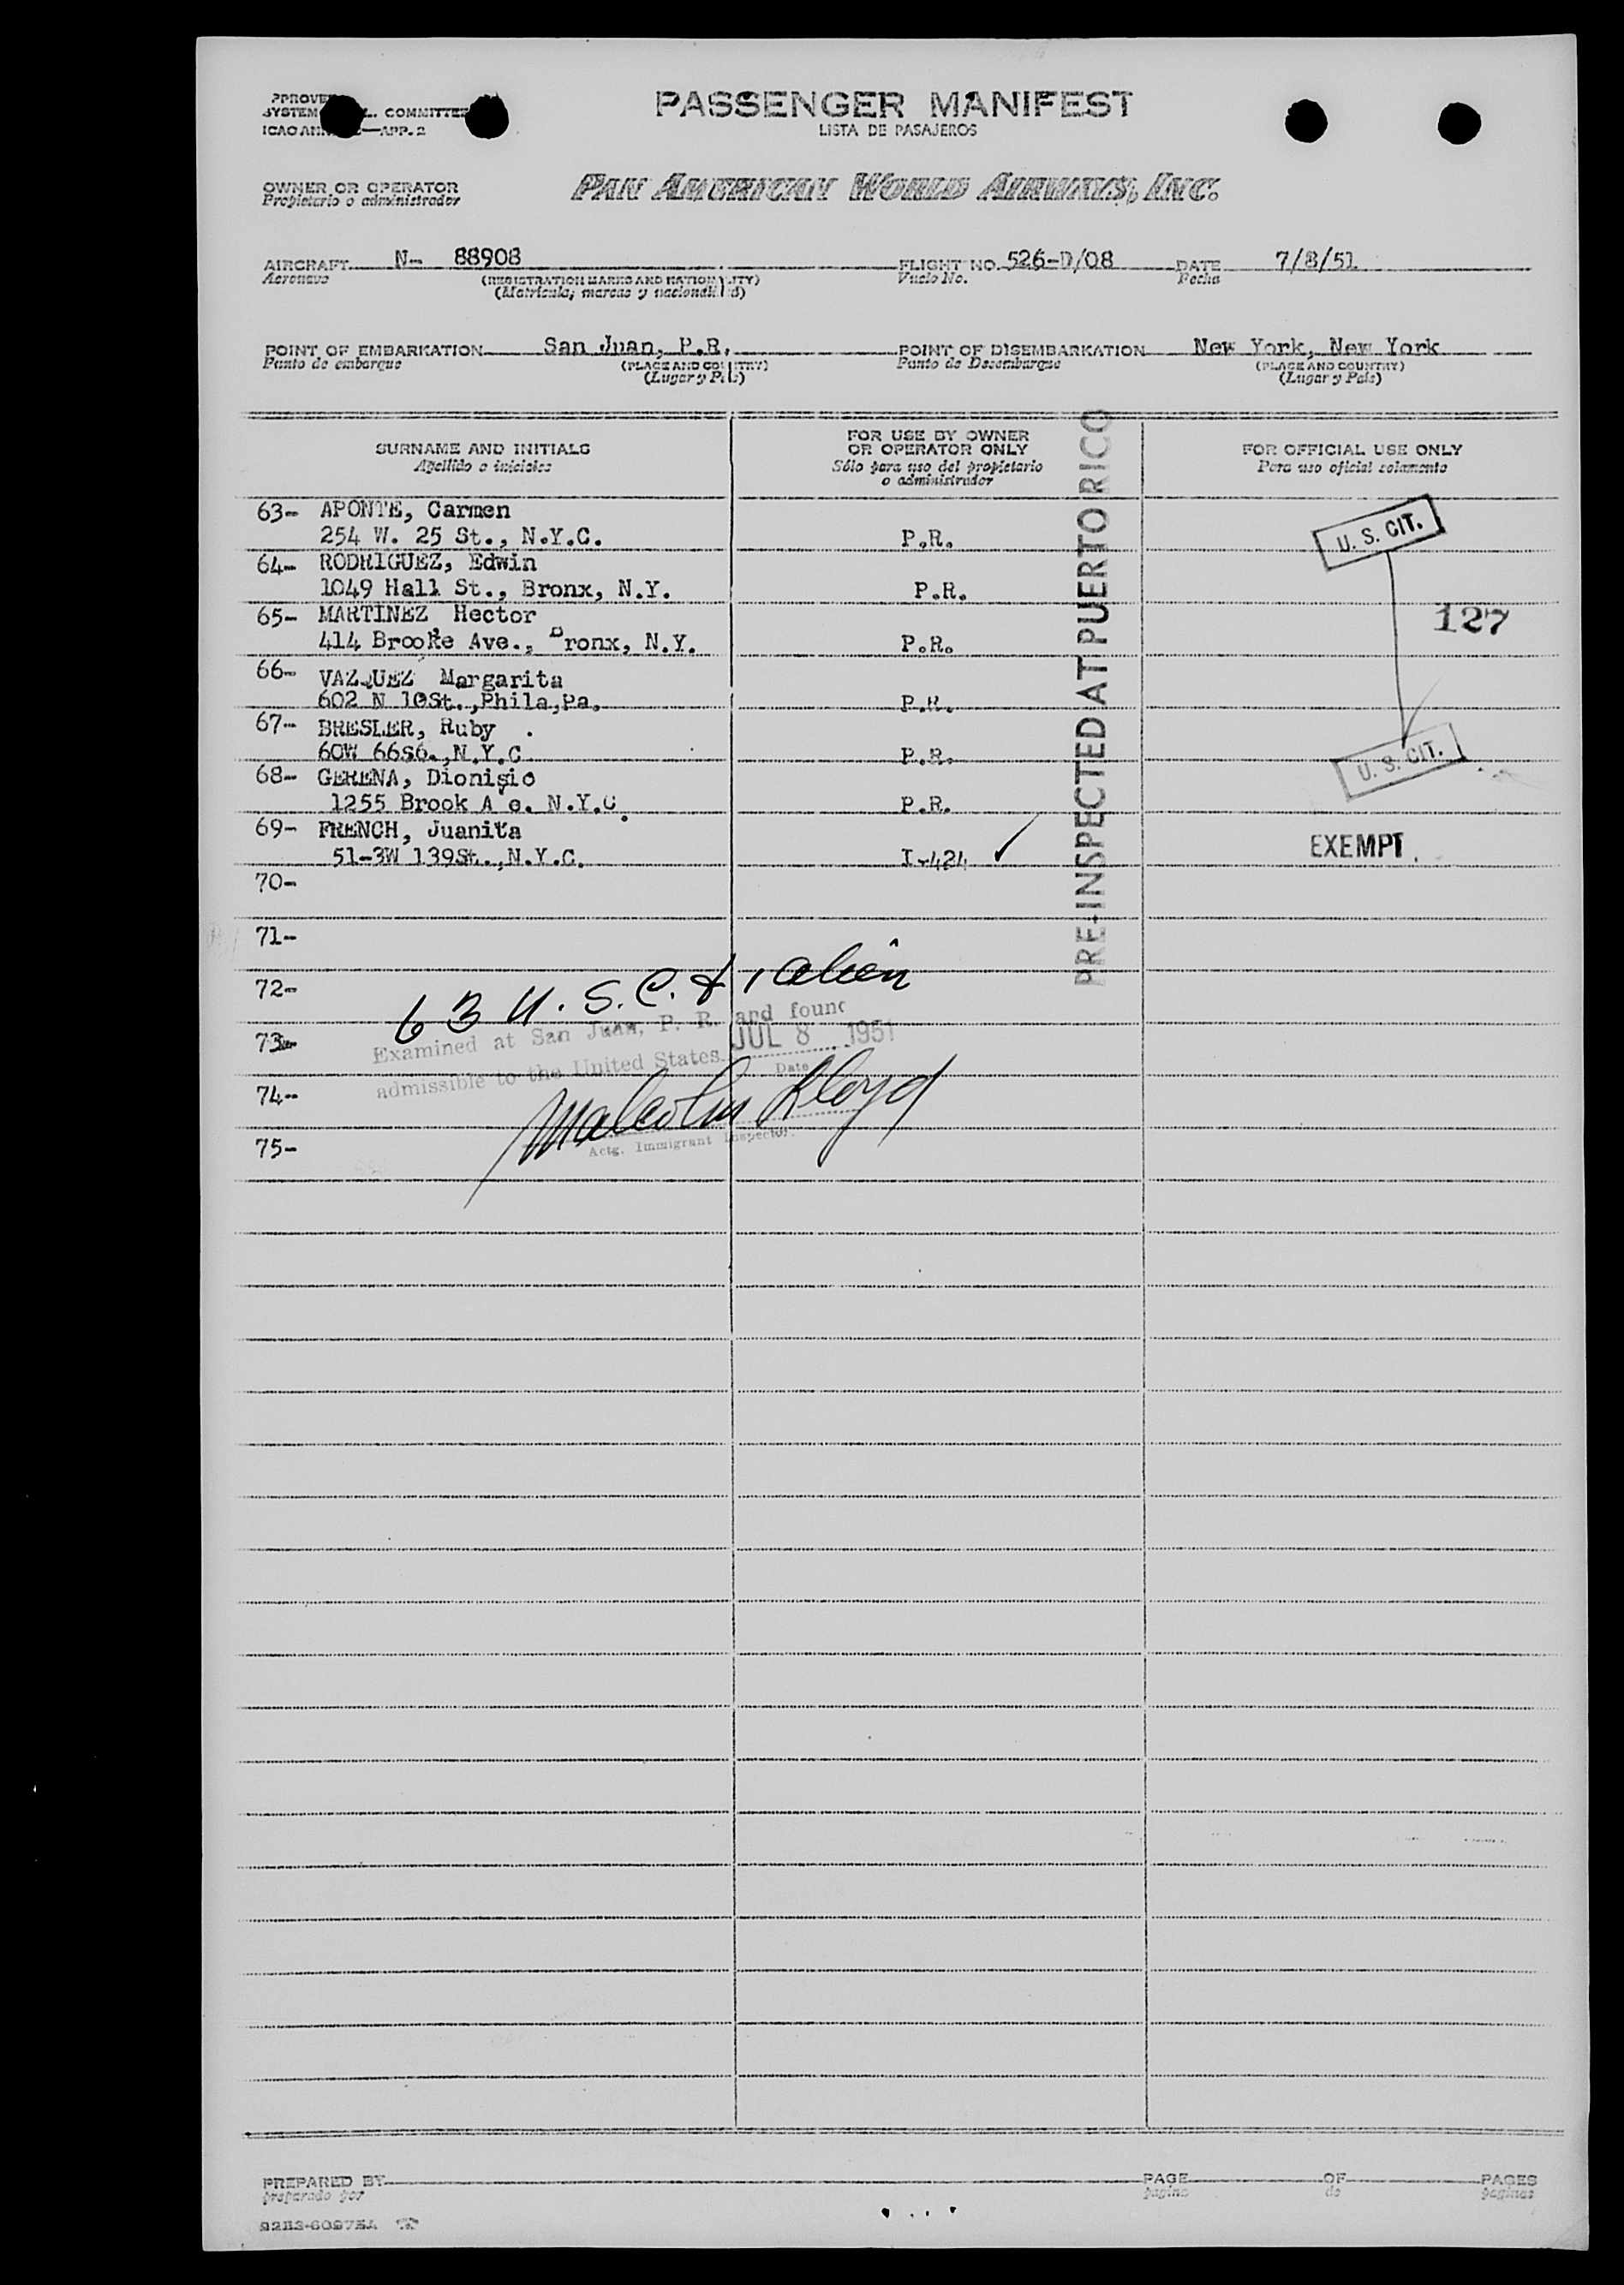 PASSENGER MANIFEST
LISTA DE PASAJEROS
COMMITTEE
APP. 2
OWNER OR OPERATOR
Propietario o administrador
PAN AMERICAN WORLD AIRWAYS, INC.
AIRCRAFT N- 88908 FLIGHT NO. 526-D/08 DATE 7/8/51
Aeronave (REGISTRATION MARKS AND Vuelo No. Fecha
(Matrícula, marcas y
POINT OF EMBARKATION San Juan, P.R. POINT OF DISEMBARKATION New York, New York
Punto de embarque (PLACE AND Punto de Desembarque (PLACE AND COUNTRY)
(Lugar y (Lugar y País)
SURNAME AND INITIALS
Apellido o iniciales
FOR USE BY OWNER
OR OPERATOR ONLY
Sólo para uso del propietario
o administrador
FOR OFFICIAL USE ONLY
Para uso oficial solamente
PRE-INSPECTED AT PUERTO RICO
63- APONTE, Carmen
254 W. 25 St., N.Y.C. P.R. U. S. CIT.
64- RODRIGUEZ, Edwin
1049 Hall St., Bronx, N.Y. P.R.
65- MARTINEZ, Hector 127
414 Brooke Ave., Bronx, N.Y. P.R.
66- VAZQUEZ Margarita
602 N 10St.,Phila,Pa. P.R.
67- BRESLER, Ruby .
60W 66S6.,N.Y.C P.R. U. S. CIT.
68- GERENA, Dionisio
1255 Brook A e. N.Y.C. P.R.
69- FRENCH, Juanita
51-3W 139St.,N.Y.C. I-424 ✓ EXEMPT
70-
71-
72-
63 U.S.C. & 1 alien
73-
Examined at San Juan, P. R. and found
admissible to the United States JUL 8 1951
Date
74-
Malcolm Lloyd
Actg. Immigrant Inspector.
75-
PREPARED BY PAGE OF PAGES
preparado por página de páginas